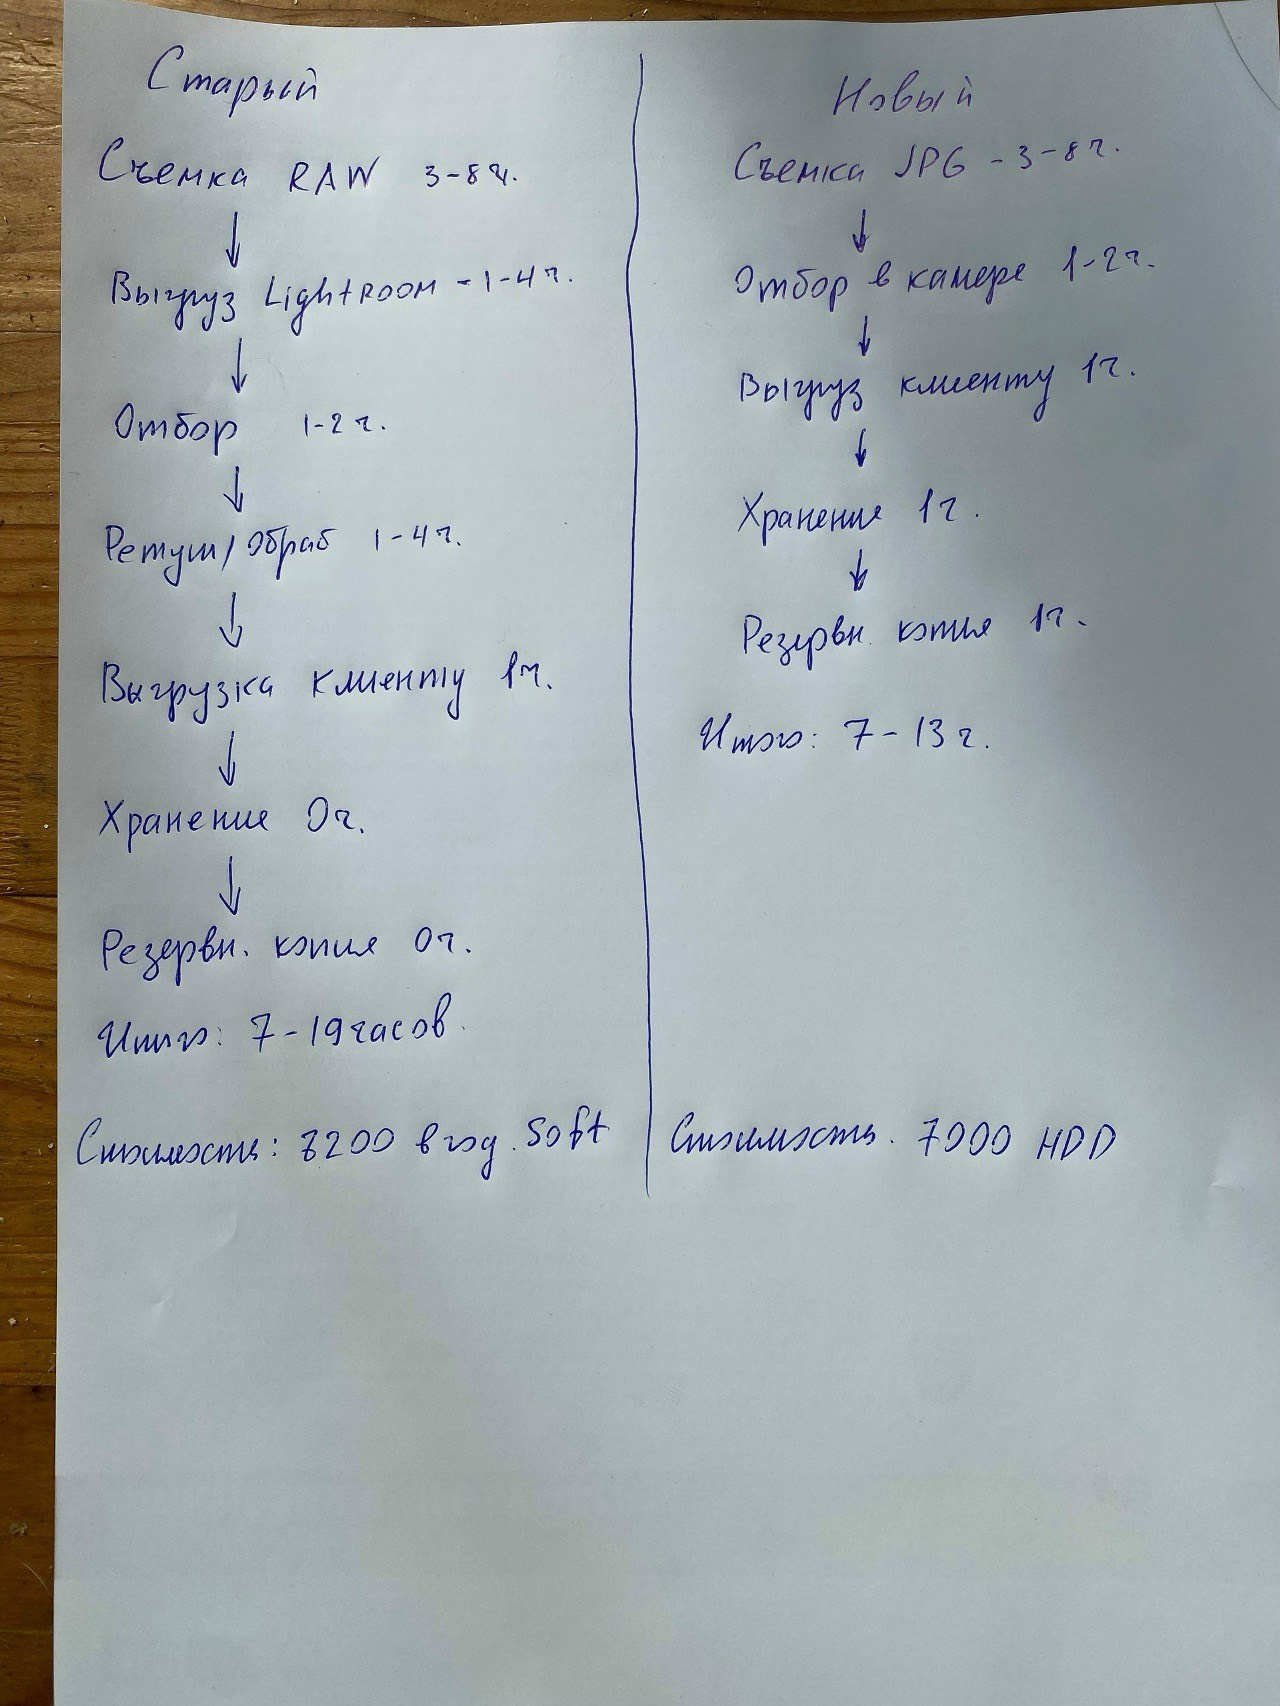 Старый
Съемка RAW 3-8ч.
Выгруз Lightroom - 1-4ч.
Отбор 1-2ч.
Ретуш/Обраб 1-4ч.
Выгрузка клиенту 1ч.
Хранение 0ч.
Резервн. копия 0ч.
Итого: 7-19 часов.
Стоимость: 8200 в год. Soft
Новый
Съемка JPG - 3-8ч.
Отбор в камере 1-2ч.
Выгруз клиенту 1ч.
Хранение 1ч.
Резервн. копия 1ч.
Итого: 7-13ч.
Стоимость. 7000 HDD